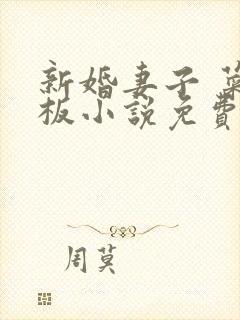 新婚妻子
板小説免費
周莫